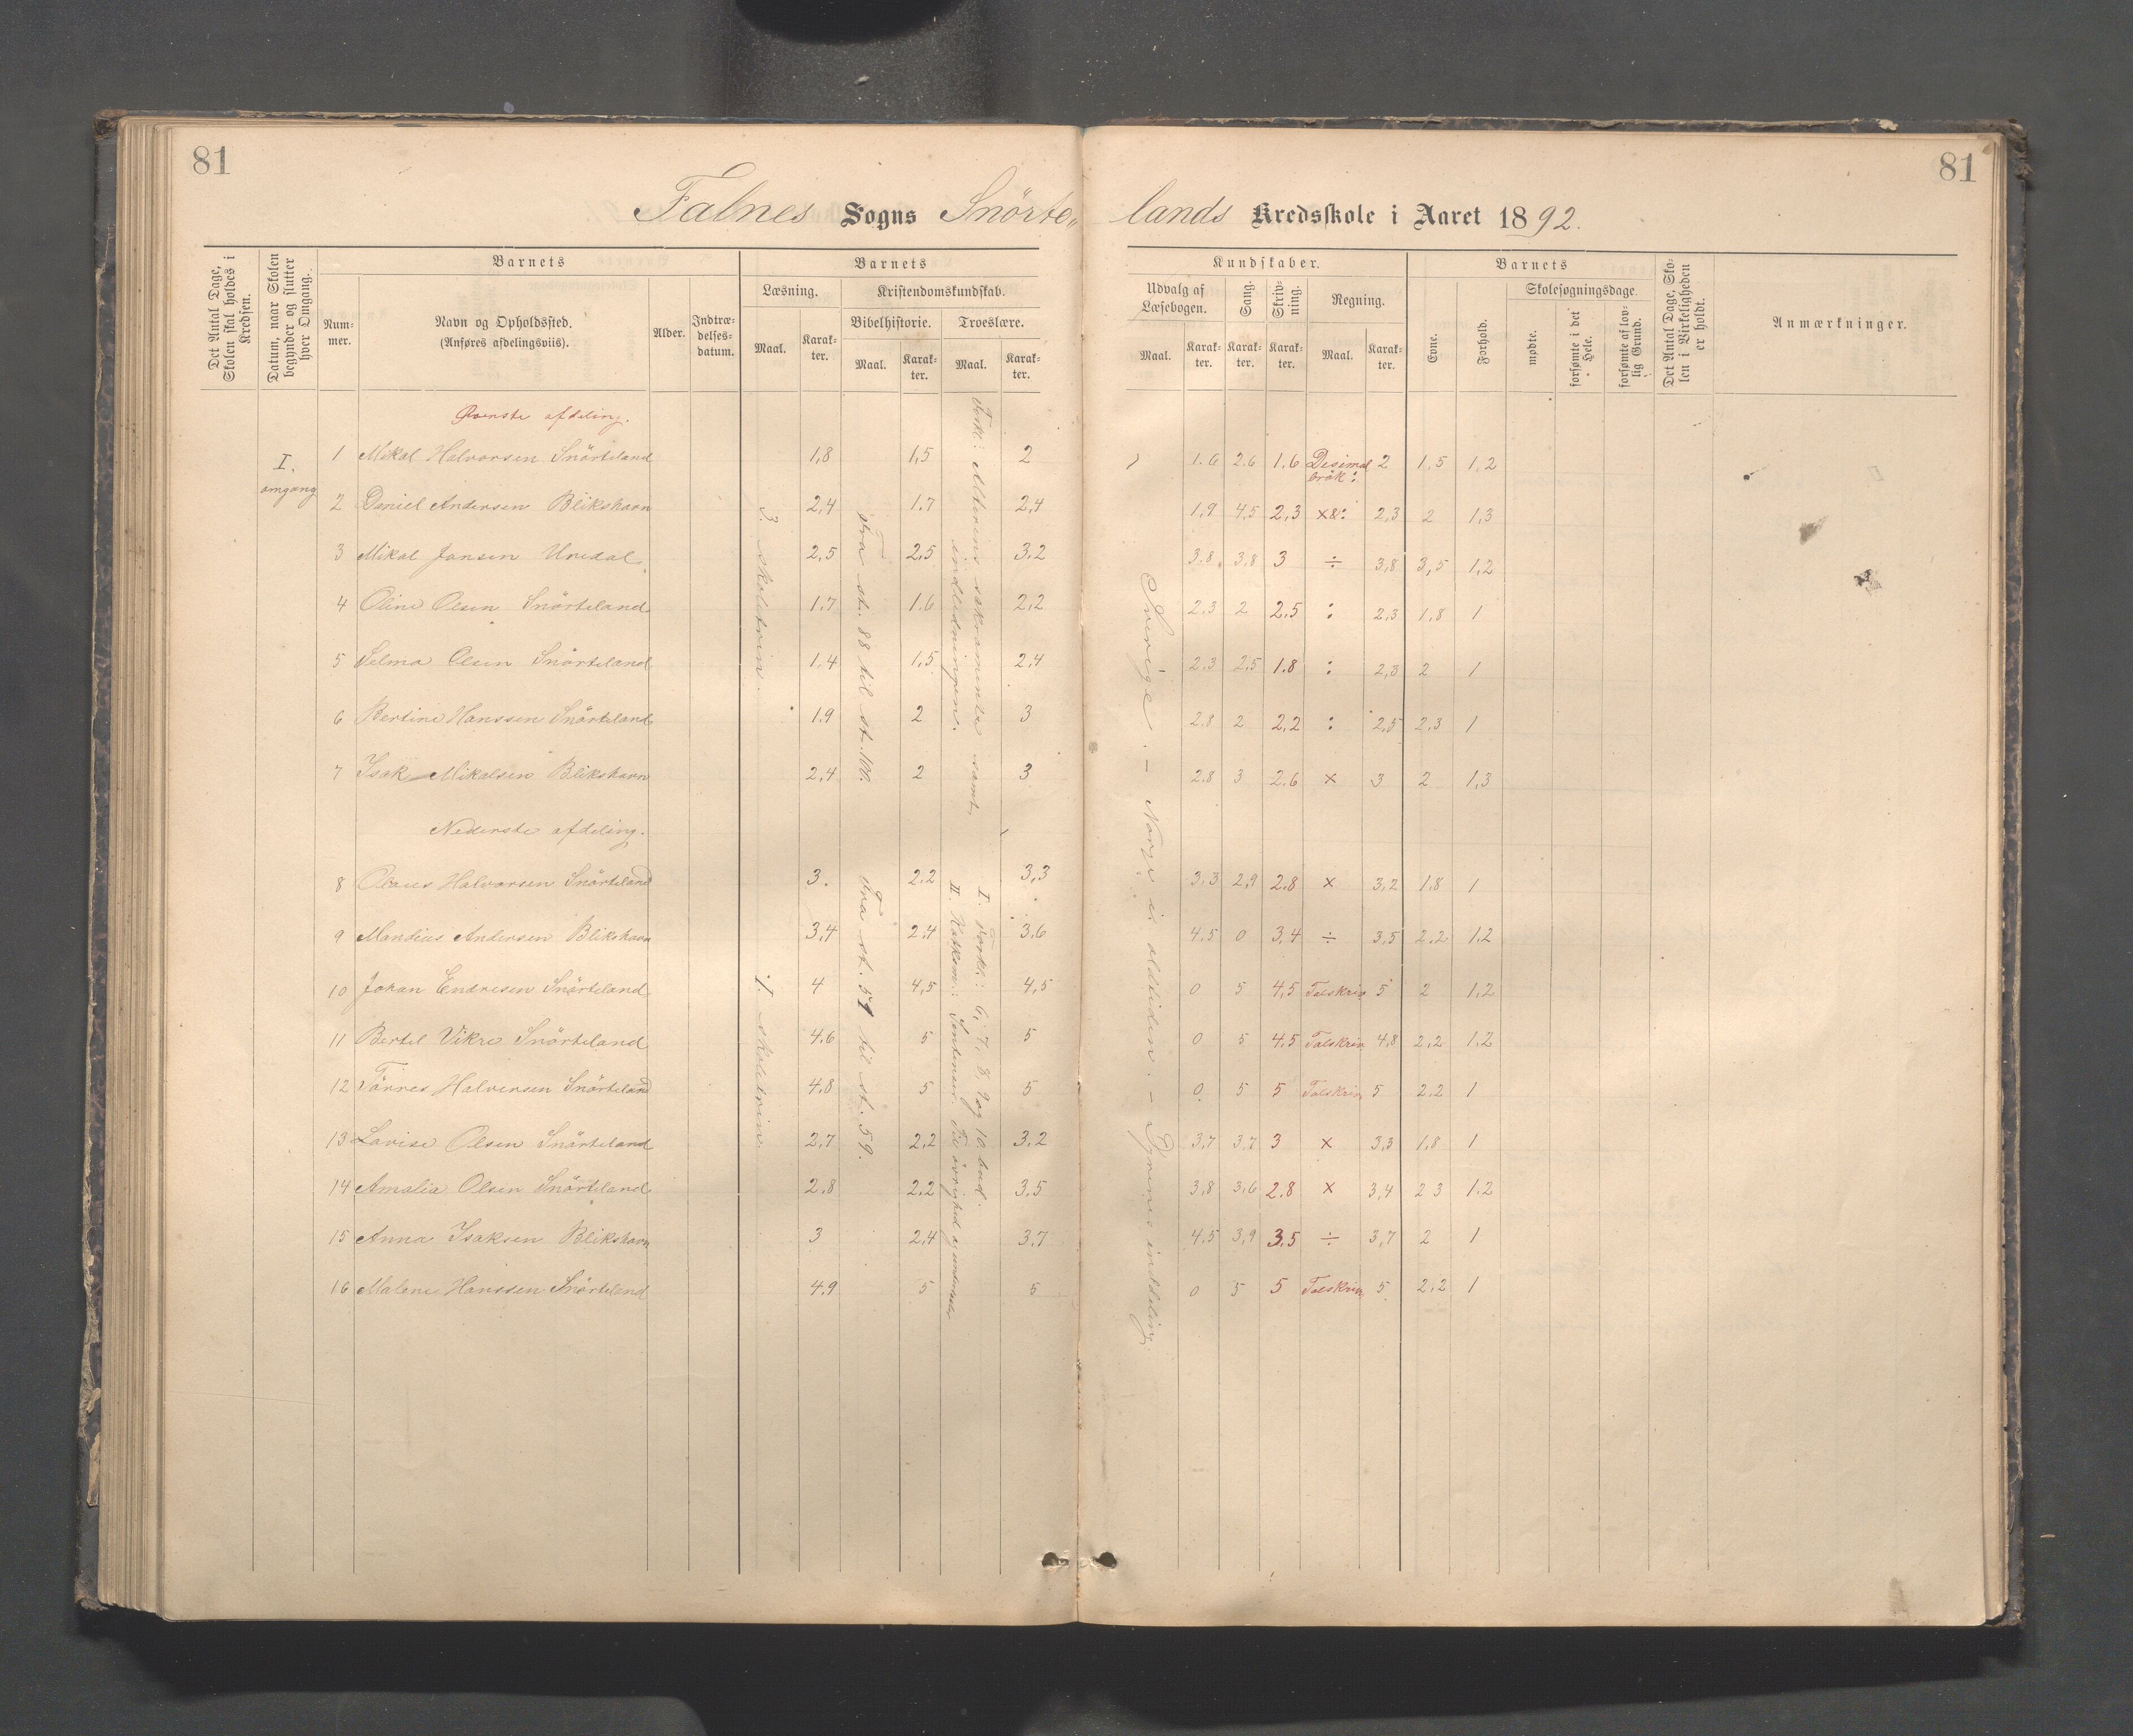 81
81
Falnes Sogns Snörte„ lands Kredsskole i Aaret 1892.
Det Antal Dage, Skolen skal holdes i Kredsen.
Datum, naar Skolen begynder og slutter hver Omgang.
Barnets
Nummer.
Navn og Opholdssted.
(Anføres afdelingsviis).
Alder.
Indtrædelsesdatum.
Barnets
Læsning.
Maal.
Karakter.
Kristendomskundskab.
Bibelhistorie.
Maal.
Karakter.
Troeslære.
Maal.
Karakter.
Kundskaber.
Udvalg af Læsebogen.
Maal.
Karakter.
Sang.
Karakter.
Skrivning.
Karakter.
Regning.
Maal.
Karakter.
Barnets
Evne.
Forhold.
Skolesøgningsdage.
mødte.
forsømte i det Hele.
forsømte af lovlig Grund.
Det Antal Dage, Skolen i Virkeligheden er holdt.
Anmærkninger.
I. omgang
Øverste afdeling.
1 Mikal Halvorsen Snörteland 1,8 1,5 2 1.6 2.6 1.6 Desimal brök : 2 1,5 1,2
2 Daniel Andersen Blikshavn 2,4 1.7 2,4 1,9 4,5 2,3 x&: 2,3 2 1,3
3 Mikal Jansen Uredal 2,5 2,5 3.2 3.8 3,8 3 ÷ 3,8 3,5 1,2
4 Oline Olsen Snörteland 1.7 1.6 2,2 2.3 2 2.5 : 2,3 1,8 1
5 Selma Olsen Snörteland 1.4 1,5 2,4 2.3 2,5 1.8 : 2,3 2 1
6 Bertine Hanssen Snörteland 1.9 2 3 2.8 2 2,2 : 2,5 2,3 1
7 Isak Mikalsen Blikshavn 2,4 2 3 2.8 3 2.6 x 3 2 1,3
3. skoletrin.
Fra st. 88 til st. 100.
Forkl.: Alterens sakramente samt indledningen.
Nederste afdeling.
8 Olaus Halvorsen Snörteland 3. 2.2 3,3 3,3 2,9 2.8 x 3,2 1,8 1
9 Mandius Andersen Blikshavn 3,4 2,4 3.6 4.5 0 3,4 ÷ 3,5 2,2 1,2
10 Johan Endresen Snörteland 4 4,5 4,5 0 5 4,5 Talskriv. 5 2 1,2
11 Bertel Vikre Snörteland 4.6 5 5 0 5 4.5 Talskriv. 4,8 2,2 1,2
12 Törres Halvorsen Snörteland 4.8 5 5 0 5 5 Talskriv. 5 2.2 1
13 Lovise Olsen Snörteland 2,7 2,2 3,2 3,7 3.7 3 x 3,3 1,8 1
14 Amalia Olsen Snörteland 2,8 2.2 3.5 3,8 3,6 2.8 x 3,4 2 3 1.2
15 Anna Isaksen Blikshavn 3 2,4 3,7 4.5 3,9 3.5 ÷ 3,7 2 1
16 Malene Hanssen Snörteland 4.9 5 5 0 5 5 Talskriv. 5 2,2 1
1. skoletrin.
Fra st. 51 til st. 59.
I. Forkl.: 6, 7, 8, 9 og 10 bud.
II. Katkism.: Til övrighed og
Sverige. – Norge i oldtiden. – Dyrenes inddeling